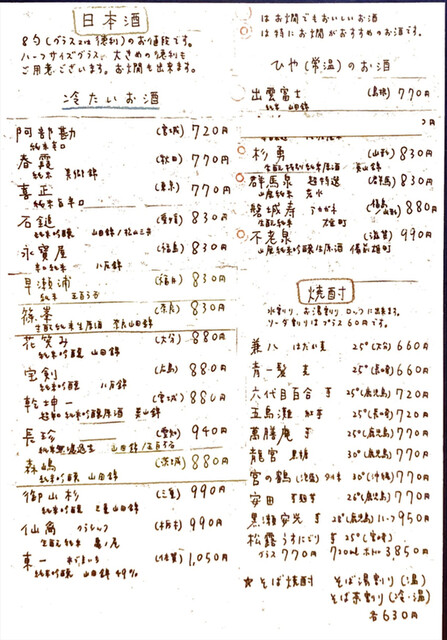 日本酒
8勺(グラス又は徳利)のお値段です。
ハーフサイズグラス、大きめの徳利も
ご用意ございます。お燗も出来ます。
冷たいお酒
阿部勘 (宮城) 720円
純米辛口
春霞 (秋田) 770円
純米 美郷錦
喜正 (東京) 770円
純米
石鎚 (愛媛) 830円
純米吟醸 山田錦/松山三井
永寶屋 (福島) 830円
八反錦
早瀬浦 (福井) 830円
純米 五百万石
篠峯 (奈良) 830円
生酛純米生原酒 山田錦
花笑み (大分) 880円
純米吟醸 山田錦
宝剣 (広島) 880円
純米吟醸 八反錦
乾坤一 (宮城) 880円
純米吟醸原酒 美山錦
長珍 (愛知) 940円
純米無濾過生 山田錦/五百万石
森嶋 (茨城) 880円
純米吟醸 山田錦
御山杉 (三重) 990円
純米吟醸 三重山田錦
仙禽 クラシック (栃木) 990円
生酛純米 亀ノ尾
東一 (佐賀) 1,050円
純米吟醸 山田錦 49%
○はお燗でもおいしいお酒
○は特にお燗がおすすめのお酒です。
ひや(常温)のお酒
出雲富士 (島根) 770円
純米 山田錦
円
杉勇 (山形) 830円
生酛特別純米原酒 美山錦
群馬泉 超特選 (群馬) 830円
山廃純米 若水
磐城寿 (福島/山形) 880円
生酛純米 雄町
不老泉 (滋賀) 990円
山廃純米吟醸生原酒 備前雄町
焼酎
水割り、お湯割り、ロックに出来ます。
ソーダ割りはプラス60円です。
兼八 はだか麦 25°(大分) 660円
青一髪 麦 25°(長崎) 660円
六代目百合 芋 25°(鹿児島) 720円
五島灘 紅芋 25°(長崎) 720円
萬膳庵 芋 25°(鹿児島) 770円
龍宮 黒糖 30°(鹿児島) 770円
宮の鶴 (泡盛) 米 30°(沖縄) 770円
安田 芋 26°(鹿児島) 770円
黒瀬安光 芋 28°(鹿児島) ハーフ 950円
松露 うすにごり 芋 25°(宮崎)
グラス 770円 720ml ボトル 3850円
★そば焼酎 そば湯割り(温)
そば茶割り(冷・温)
各630円